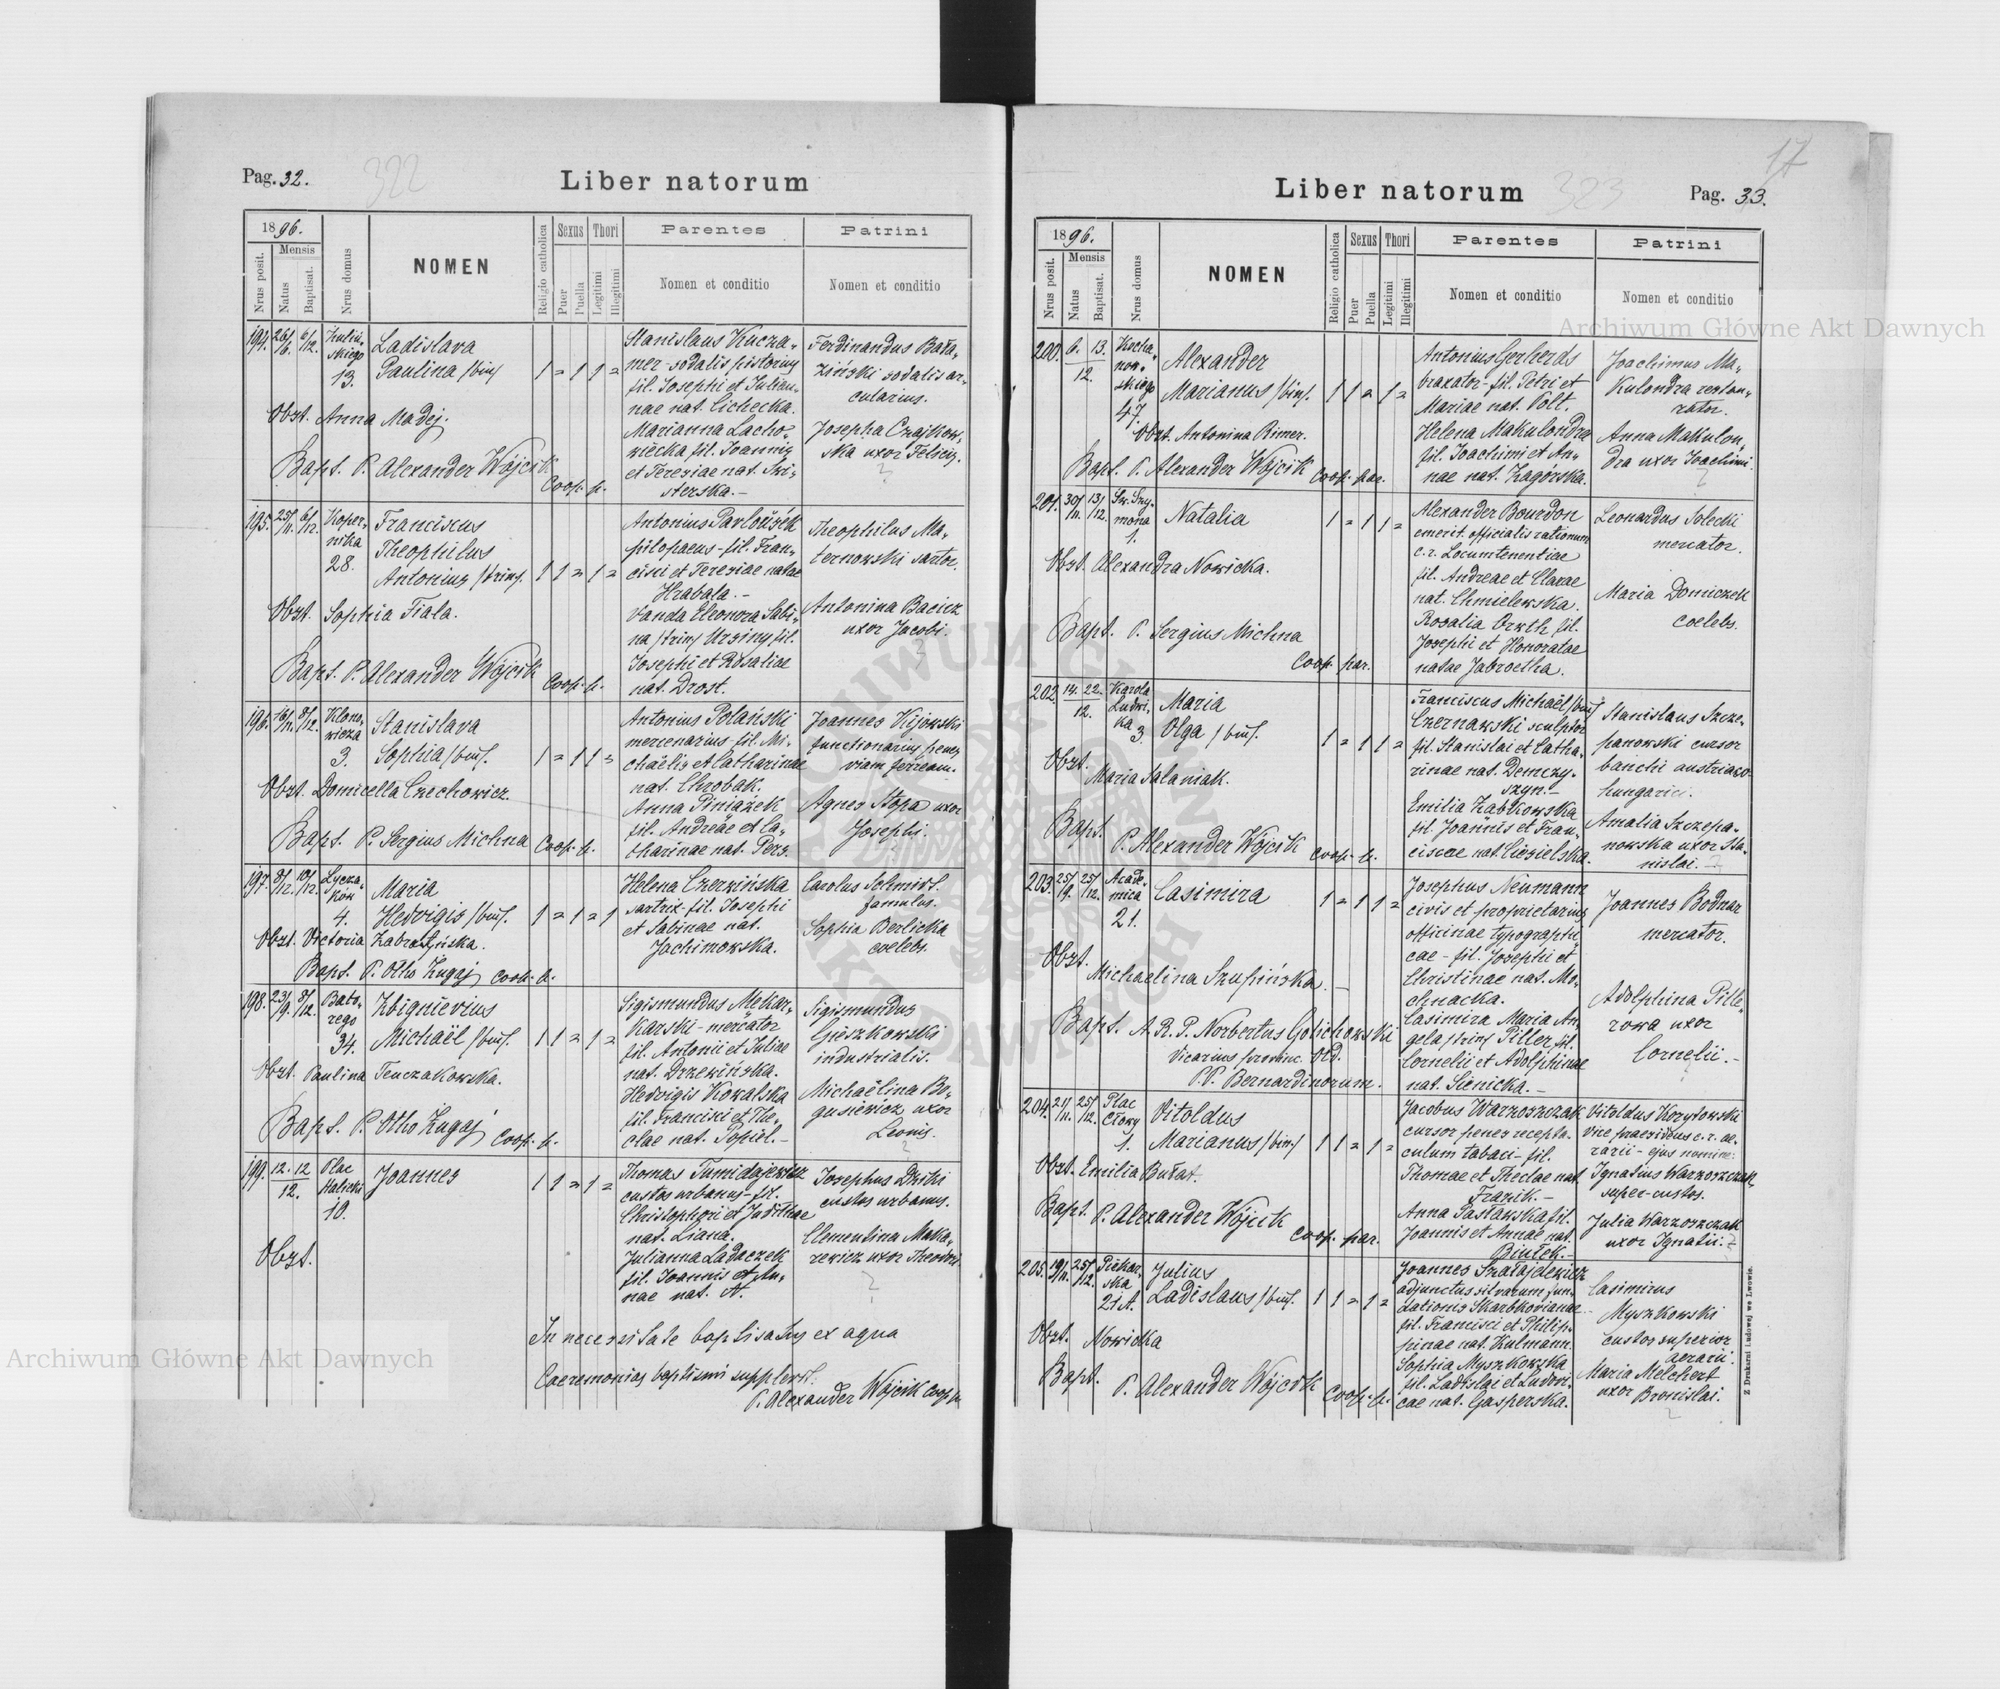 Pag. 32.
322
Liber natorum
1896.
Nrus posit.
Mensis
Natus
Baptisat.
Nrus domus
NOMEN
Religio catholica
Sexus
Puer
Puella
Thori
Legitimi
Illegitimi
Parentes
Nomen et conditio
Patrini
Nomen et conditio
194. 26/6. 6/12.
13.
Ladislava
Paulina /bin/
1 = 1 1 =
Stanislaus Kucza-
mer - sodalis pistorius
fil. Josephi et Julian-
nae nat. Cichecka.
Marianna Lacho-
wiecka fil. Joannis
et Teresiae nat. Swi-
sterska. -
Ferdinandus Bała-
ziński sodalis ar-
cularius.
Josepha Czajkow-
ska uxor Felicis.
Obst. Anna Madej.
Bapt. P. Alexander Wójcik
Coop. p.
195. 25/11. 6/12.
Koper-
nika
28.
Franciscus
Theophilus
Antonius /trin/
1 1 = 1 =
Antonius Pavloušek
pilopaeus - fil. Fran-
cisci et Teresiae natae
Hrabala. -
Vanda Eleonora Sabi-
na /trin/ Ursiny fil.
Josephi et Rosaliae
nat. Drost.
Theophilus Ma-
ternowski sartor.
Antonina Bacicz
uxor Jacobi.
Obst. Sophia Fiala.
Bapt. P. Alexander Wójcik
Coop. p.
196. 16/11. 8/12.
Klono-
wicza
3.
Stanislava
Sophia /bin/.
1 = 1 1 =
Antonius Polański
mercenarius - fil. Mi-
chaëlis et Catharinae
nat. Chrobak.
Anna Piniążek
fil. Andreae et Ca-
tharinae nat. Pers.
Joannes Kijowski
functionarius penes
viam ferream.
Agnes Stopa uxor
Josephi.
Obst. Domicella Czechowicz.
Bapt. P. Sergius Michna Coop. p.
197. 8/12. 10/12.
Łycza-
ków
4.
Maria
Hedvigis /bin/.
1 = 1 = 1
Helena Czerwińska
sartrix - fil. Josephi
et Sabinae nat.
Jachimowska.
Carolus Schmidt.
famulus.
Sophia Berlicka
coelebs.
Obst. Victoria
Bapt. P. Otho Zugaj Coop. p.
198. 23/9. 8/12.
Bato-
rego
34.
Zbignievius
Michaël /bin/.
1 1 = 1 =
Sigismundus Mekar-
karski - mercator
fil. Antonii et Juliae
nat. Drzewińska.
Hedvigis Kowalska
fil. Francisci et The-
clae nat. Popiel. -
Sigismundus
Gieszkowski
industrialis.
Michaëlina Bo-
gusiewicz uxor
Leonis.
Obst. Paulina Tenczakowska.
Bapt. P. Otho Zugaj Coop. p.
199. 12. 12
12.
Plac
Halicki
10.
Joannes
1 1 = 1 =
Thomas Tumidajewicz
custos urbanus - fil.
Christophori et Judithae
nat. Liana.
Julianna Ladaczek
fil. Joannis et An-
nae nat. N.
Josephus Dziki
custos urbanus.
Clementina Maka-
rewicz uxor Theodori
Obst.
In necessitate baptisatus ex aqua
Caeremonias baptismi supplevit.
P. Alexander Wójcik Coop. p.
Liber natorum
323
Pag. 33.
17
1896.
Nrus posit.
Mensis
Natus
Baptisat.
Nrus domus
NOMEN
Religio catholica
Sexus
Puer
Puella
Thori
Legitimi
Illegitimi
Parentes
Nomen et conditio
Patrini
Nomen et conditio
200. 6. 13.
12.
Kocha-
now-
skiego
47.
Alexander
Marianus /bin/.
1 1 = 1 =
Antonius Gerherds
braxator - fil. Petri et
Mariae nat. Polt.
Helena Makulondra
fil. Joachimi et An-
nae nat. Zagórska.
Joachimus Ma-
kulondra restau-
rator.
Anna Makulon-
dra uxor Joachimi.
Obst. Antonina Rimer.
Bapt. P. Alexander Wójcik Coop. par.
201. 30/11. 13/12.
Św. Szy-
mona
1.
Natalia
1 = 1 1 =
Alexander Bourdon
emerit. officialis rationum
c. r. Locumtenentiae
fil. Andreae et Clarae
nat. Chmielewska.
Rosalia Orwth fil.
Josephi et Honoratae
natae Jabroetha.
Leonardus Solecki
mercator.
Maria Domiczek
coelebs.
Obst. Alexandra Nowicka.
Bapt. P. Sergius Michna
Coop. par.
202. 14. 22.
12.
Karola
Ludwi-
ka
3.
Maria
Olga /bin/.
1 = 1 1 =
Franciscus Michaël /bin/
Czernawski sculptor
fil. Stanislai et Catha-
rinae nat. Demczy-
szyn. -
Emilia Ząbkowska
fil. Joannis et Fran-
ciscae nat. Ciesielska.
Stanislaus Szcze-
panowski cursor
banchi austriaco-
hungarici.
Amalia Szczepa-
nowska uxor Sta-
nislai.
Obst.
Maria Salaniak.
Bapt.
P. Alexander Wójcik Coop. p.
203. 25/9. 25/12.
Acade-
mica
21.
Casimira
1 = 1 1 =
Josephus Neumann
civis et proprietarius
officinae typographi-
cae - fil. Josephi et
Christinae nat. Mo-
chnacka.
Casimira Maria An-
gela /trin/ Piller fil.
Cornelii et Adolphinae
nat. Sienicka. -
Joannes Bodnar
mercator.
Adolphina Pille-
rowa uxor
Cornelii. -
Obst.
Michaelina Szupińska. -
Bapt. A. R. P. Norbertus Golichowski
Vicarius provinc. Ord.
P.P. Bernardinorum.
204. 21/11. 25/12.
Plac
Cłowy
1.
Vitoldus
Marianus /bin/
1 1 = 1 =
Jacobus Warzoszczak
cursor penes recepta-
culum tabaci - fil.
Thomae et Theclae nat.
Frazik. -
Anna Pasławska fil.
Joannis et Annae nat.
Biułek. -
Vitoldus Korytowski
Vice praesidens c. r. ae-
rarii - ejus nomine:
Ignatius Warzoszczak
super-custos.
Julia Warzoszczak
uxor Ignatii.
Obst. Emilia Bułat.
Bapt. P. Alexander Wójcik
Coop. par.
205. 19/11. 25/12.
Piekar-
ska
21 A.
Julius
Ladislaus /bin/.
1 1 = 1 =
Joannes Szałajelewicz
adjunctus silvarum fun-
dationis Skarbkovianae
fil. Francisci et Philip-
pinae nat. Kulmann.
Sophia Myszkowska
fil. Ladislai et Ludovi-
cae nat. Gasperska.
Casimirus
Myszkowski
custos superior
aerarii.
Maria Melchert
uxor Bronislai.
Obst. Nowicka
Bapt.
P. Alexander Wójcik Coop. p.
Z Drukarni Ludowej we Lwowie.
Archiwum Główne Akt Dawnych
Archiwum Główne Akt Dawnych
ARCHIWUM GŁÓWNE AKT DAWNYCH